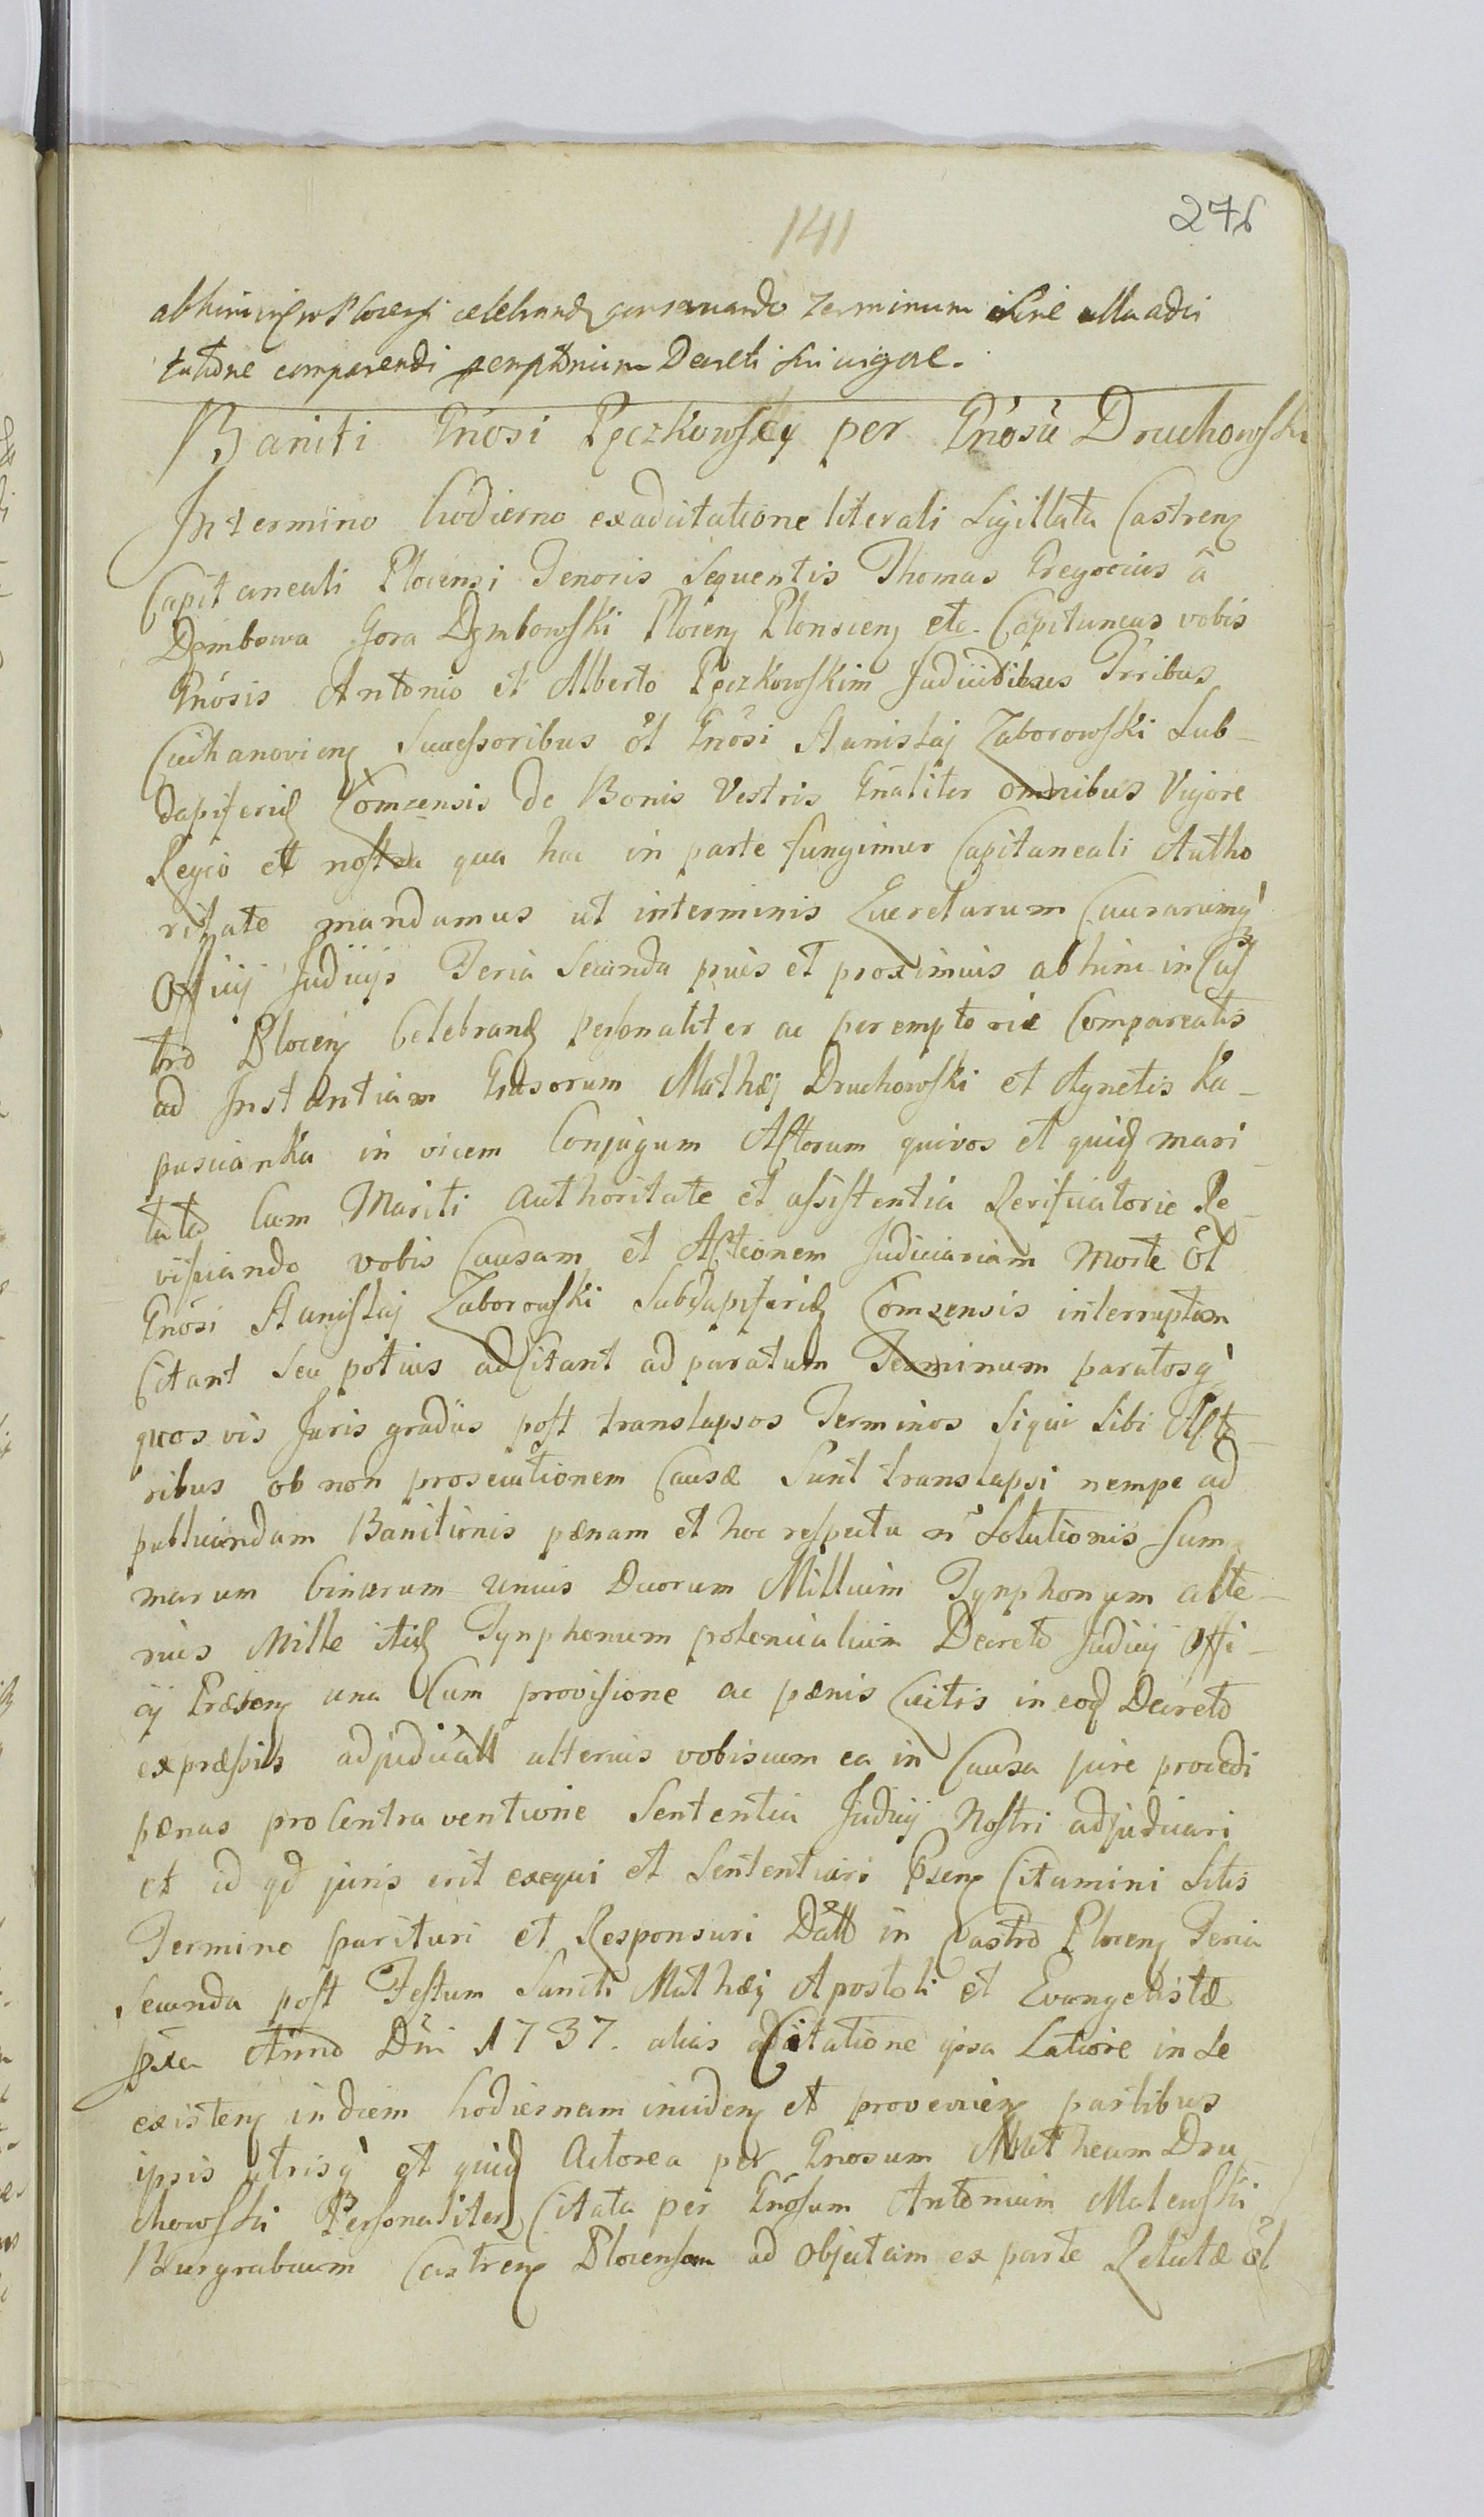 141
276
abhinc in Plocen celebrand conservando Terminum sine ulla adci
tatione comparendi peremptorium Decreti sui vigore.
Baniti Gnosi Pęczkowscy per Gnosu Druchowski
In termino hodierno ex adcitatione literali Sigillata Castren
Capitaneali Plocensi Tenoris Sequentis Thomas Gregorius â
Dęmbowa Gora Dęmbowski Plocen Plonscen etc. Capitaneus vobis
Gnosis Antonio et Alberto Pęczkowskim Judicialibus Trribus
Ciechanovien Successoribus ol Gnosi Stanislaj Zaborowski Sub-
dapiferid Lomzensis de Bonis Vestris Gnaliter omnibus Vigore
Regio et nostra qua hac in parte fungimur Capitaneali Autho
ritate mandamus ut in terminis Querelarum Causarumq
Officij Judicijs Feria Secunda pris et proximis abhinc in Cas
tro Plocen Celebrand personaliter ac peremptorie Compareatis
ad Instantiam Gnosorum Mathæj Druchowski et Agnetis Ka-
puscianka in vicem Conjugum Actorum qui vos et quid mari-
tata Cum Mariti Authoritate et assistentia Verificatorie Re-
visciando vobis Causam et Actionem Judiciariam Morte ol
Gnosi Stanislaj Zaborowski Subdapiferid Lomzensis interruptam
Citant Seu potius adCitant ad paratum Terminum paratosq
quos vis Juris gradus post translapsos Terminos Siqui Sibi Acto
ribus ob non prosecutionem Causæ Sunt translapsi nempe ad
publicandam Banitionis pænam et hoc respectu n Solutionis Sum
marum binarum unius Duorum Millium Tynphonum alte-
rius Mille itid Tynphonum potencialium Decreto Judicij Offi-
cij Præsen una Cum provisione ac pænis Citis in eod Decreto
expræssis adjudicatt ulterius vobiscum ea in Causa jure procedi
pænas pro Contraventione Sententia Judicij Nostri adjudicari
et id qd juris erit exequi et Sententiari Psen Citamini Sitis
Termino parituri et Responsuri Datt in Castro Plocen Feria
Secunda post Festum Sancti Mathæj Apostoli et Evangelistæ
pxa Anno Dni 1737. alias adCitatione ipsa Latiore in Se
existen in diem hodiernam inciden et provenien partibus
ipsis utrisq et quid Actorea per Gnosum Matheum Dru
chowski Personaliter Citata per Gnosum Antonium Malewski
Burgrabium Castren Plocensem ad Objectam ex parte Relictæ ol